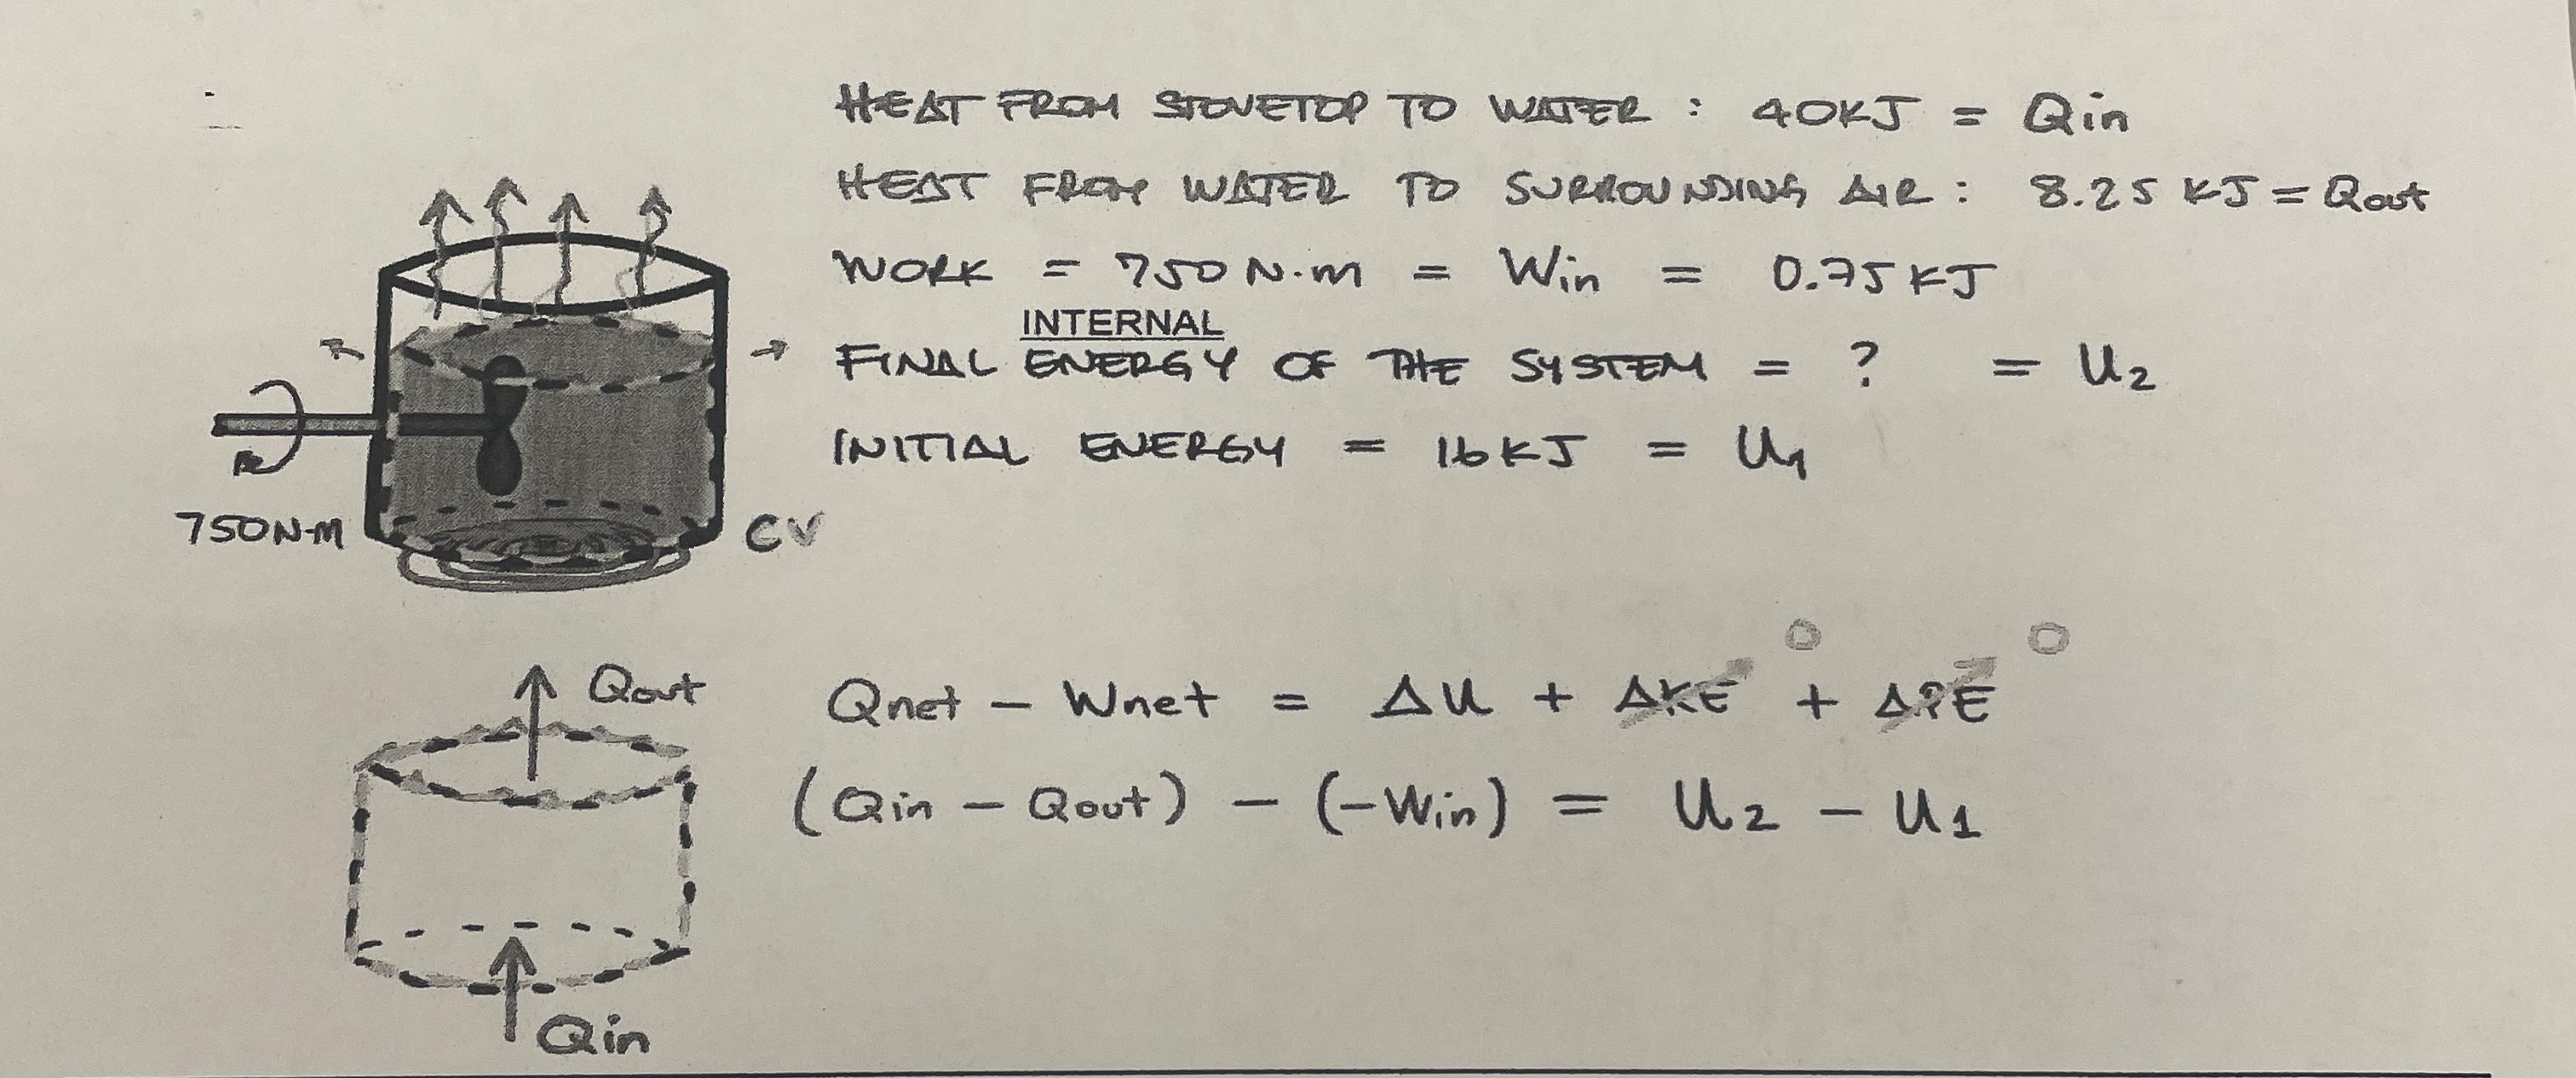 HEAT FROM STOVETOP TO WATER : 40KJ = Qin
HEAT FROM WATER TO SURROUNDING AIR : 8.25 KJ = Qout
WORK = 750 N·m = Win = 0.75 KJ
INTERNAL
FINAL ENERGY OF THE SYSTEM = ? = U2
INITIAL ENERGY = 16 KJ = U1
750N·M
CV
Qout
Qnet - Wnet = ΔU + ΔKE 0 + ΔPE 0
(Qin - Qout) - (-Win) = U2 - U1
Qin